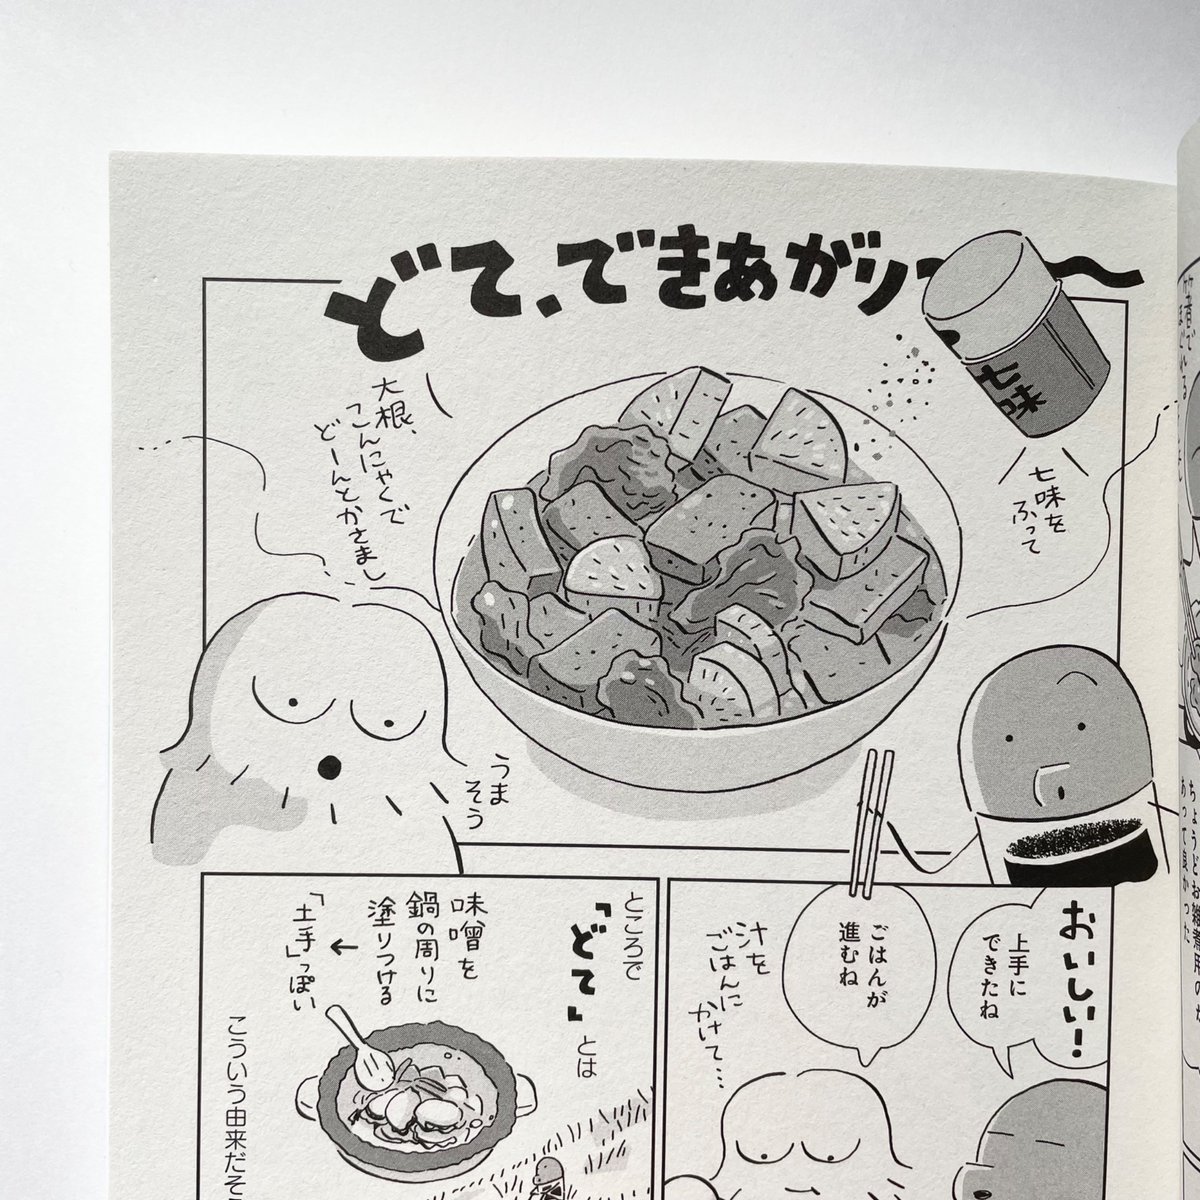 どて、できあがり〜〜
七味
七味を
ふって
大根、
こんにゃくで
どーんとかさまし
うま
そう
おいしい!
上手に
できたね
ごはんが
進むね
汁を
ごはんに
かけて…
ところで
「どて」
とは
味噌を
鍋の周りに
塗りつける
←
「土手」っぽい
こういう由来だそう
ちょうどお雑煮用のが
あって良かった